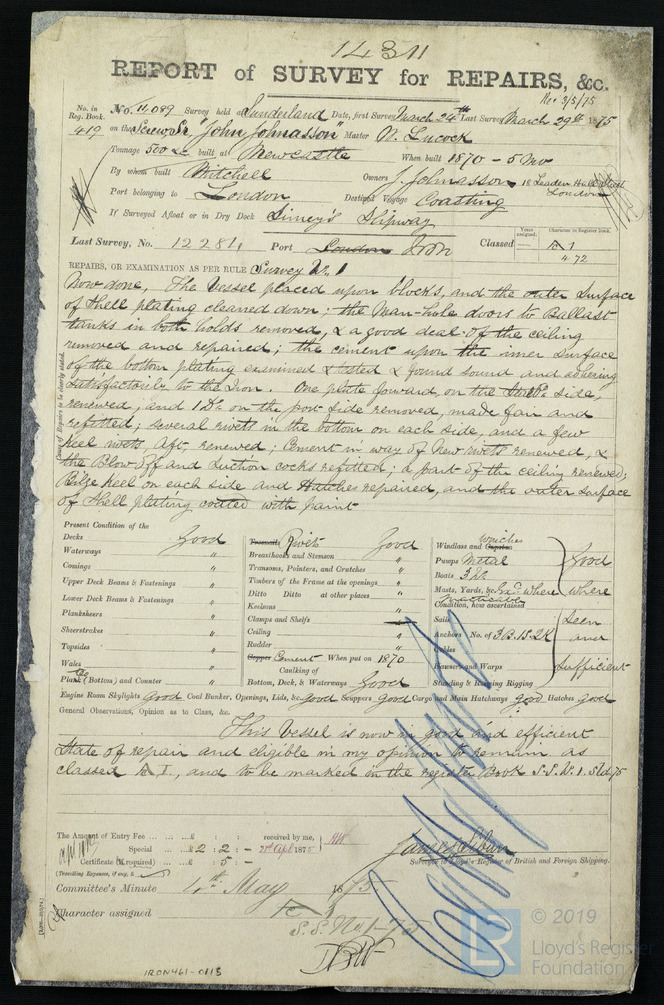 14311
REPORT of SURVEY for REPAIRS, &c.
Rec 3/5/75
No. in Reg. Book.
419
No. 11,089 Survey held at Sunderland Date, first Survey March 24th Last Survey March 29th 1875
on the Screw Sr. "John Johnasson" Master W. Lucock
Tonnage 500 built at Newcastle When built 1870 - 5 Mo
By whom built Mitchell Owners J. Johnasson 18 Leaden Hall Street London
Port belonging to London Destined Voyage Coasting
If Surveyed Afloat or in Dry Dock Dimey's Slipway
Years assigned. Character in Register book.
Last Survey, No. 12281, Port London Iron Classed — A 1
4.72
REPAIRS, OR EXAMINATION AS PER RULE Survey No. 1
Now done, The Vessel placed upon blocks, and the outer surface
of Shell plating cleaned down; the Man-hole doors to Ballast
tanks in both holds removed, & a good deal of the ceiling
removed and repaired; the cement upon the inner surface
of the bottom plating examined & tested & found sound and adhering
satisfactorily to the Iron. One plate forward on the Starbd side,
renewed, and 1 Do. on the port side removed, made fair and
refitted, several rivets in the bottom on each side, and a few
keel rivets Aft, renewed; Cement in way of New rivets renewed, &
the Blow off and Suction cocks refitted; a part of the ceiling renewed;
Bilge keel on each side and Hatches repaired, and the outer surface
of Shell plating coated with paint
Present Condition of the
Decks Good
Waterways "
Comings "
Upper Deck Beams & Fastenings "
Lower Deck Beams & Fastenings "
Planksheers "
Sheerstrakes "
Topsides "
Wales "
Plank (Bottom) and Counter "
Treenails Rivets Good
Breasthooks and Stemson "
Transoms, Pointers, and Crutches "
Timbers of the Frame at the openings "
Ditto Ditto at other places "
Keelsons "
Clamps and Shelfs
Ceiling "
Rudder "
Copper Cement When put on 1870
Caulking of
Bottom, Deck, & Waterways Good
Windlass and Capstan Winches
Pumps Metal Good
Boats 3
Masts, Yards, &c Exd where where
practicable
Condition, how ascertained
Sails Seen
Anchors No. of 3B.1S.2K and
Cables
Hawsers and Warps Sufficient
Standing & Running Rigging
Engine Room Skylights Good Coal Bunker, Openings, Lids, &c. good Scuppers Good Cargo and Main Hatchways good Hatches good
General Observations, Opinion as to Class, &c.
This Vessel is now in good and efficient
State of repair and eligible in my opinion to remain as
classed A 1, and to be marked in the register Book S.S. No. 1. Sld 75
The Amount of Entry Fee ... ... £ : : received by me,
Special ... £ 2 : 2 : - 1875
Certificate (if required) ... £ : 5 : -
(Travelling Expenses, if any, £ )
Surveyor to Lloyd's Register of British and Foreign Shipping.
Committee's Minute 4th May 1875
Character assigned
S.S. No 1-75
IRON461-0113
LR
© 2019
Lloyd's Register
Foundation